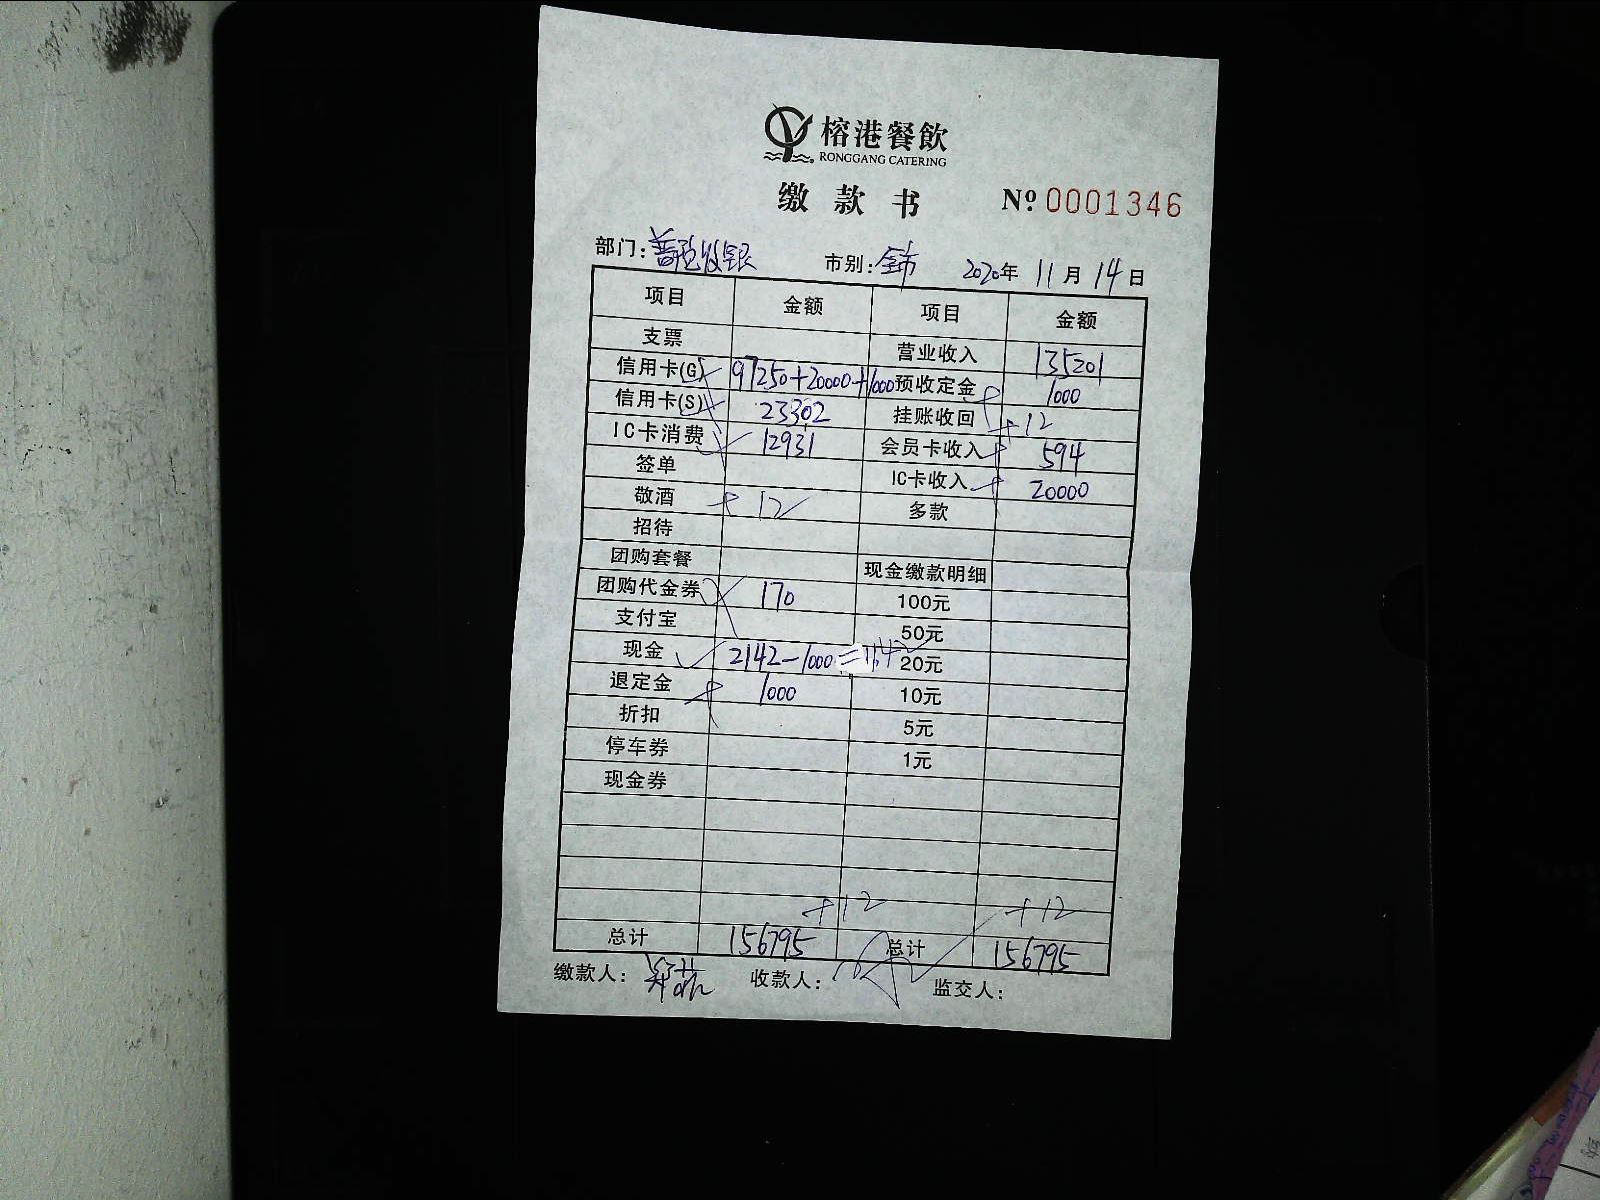 榕港餐飲
RONGGANG CATERING
缴款书 Nº 0001346
部门: 收银 市别: 全市 2020年 11月 14日
项目 金额 项目 金额
支票 营业收入 135201
信用卡(G) 97250+20000+1000 预收定金 1000
信用卡(S) 23302 挂账收回 +12
IC卡消费 12931 会员卡收入 594
签单 IC卡收入 20000
敬酒 +12 多款
招待
团购套餐 现金缴款明细
团购代金券 170 100元
支付宝 50元
现金 2142-1000= 20元
退定金 1000 10元
折扣 5元
停车券 1元
现金券
+12 +12
总计 156795 总计 156795
缴款人: 收款人: 监交人: